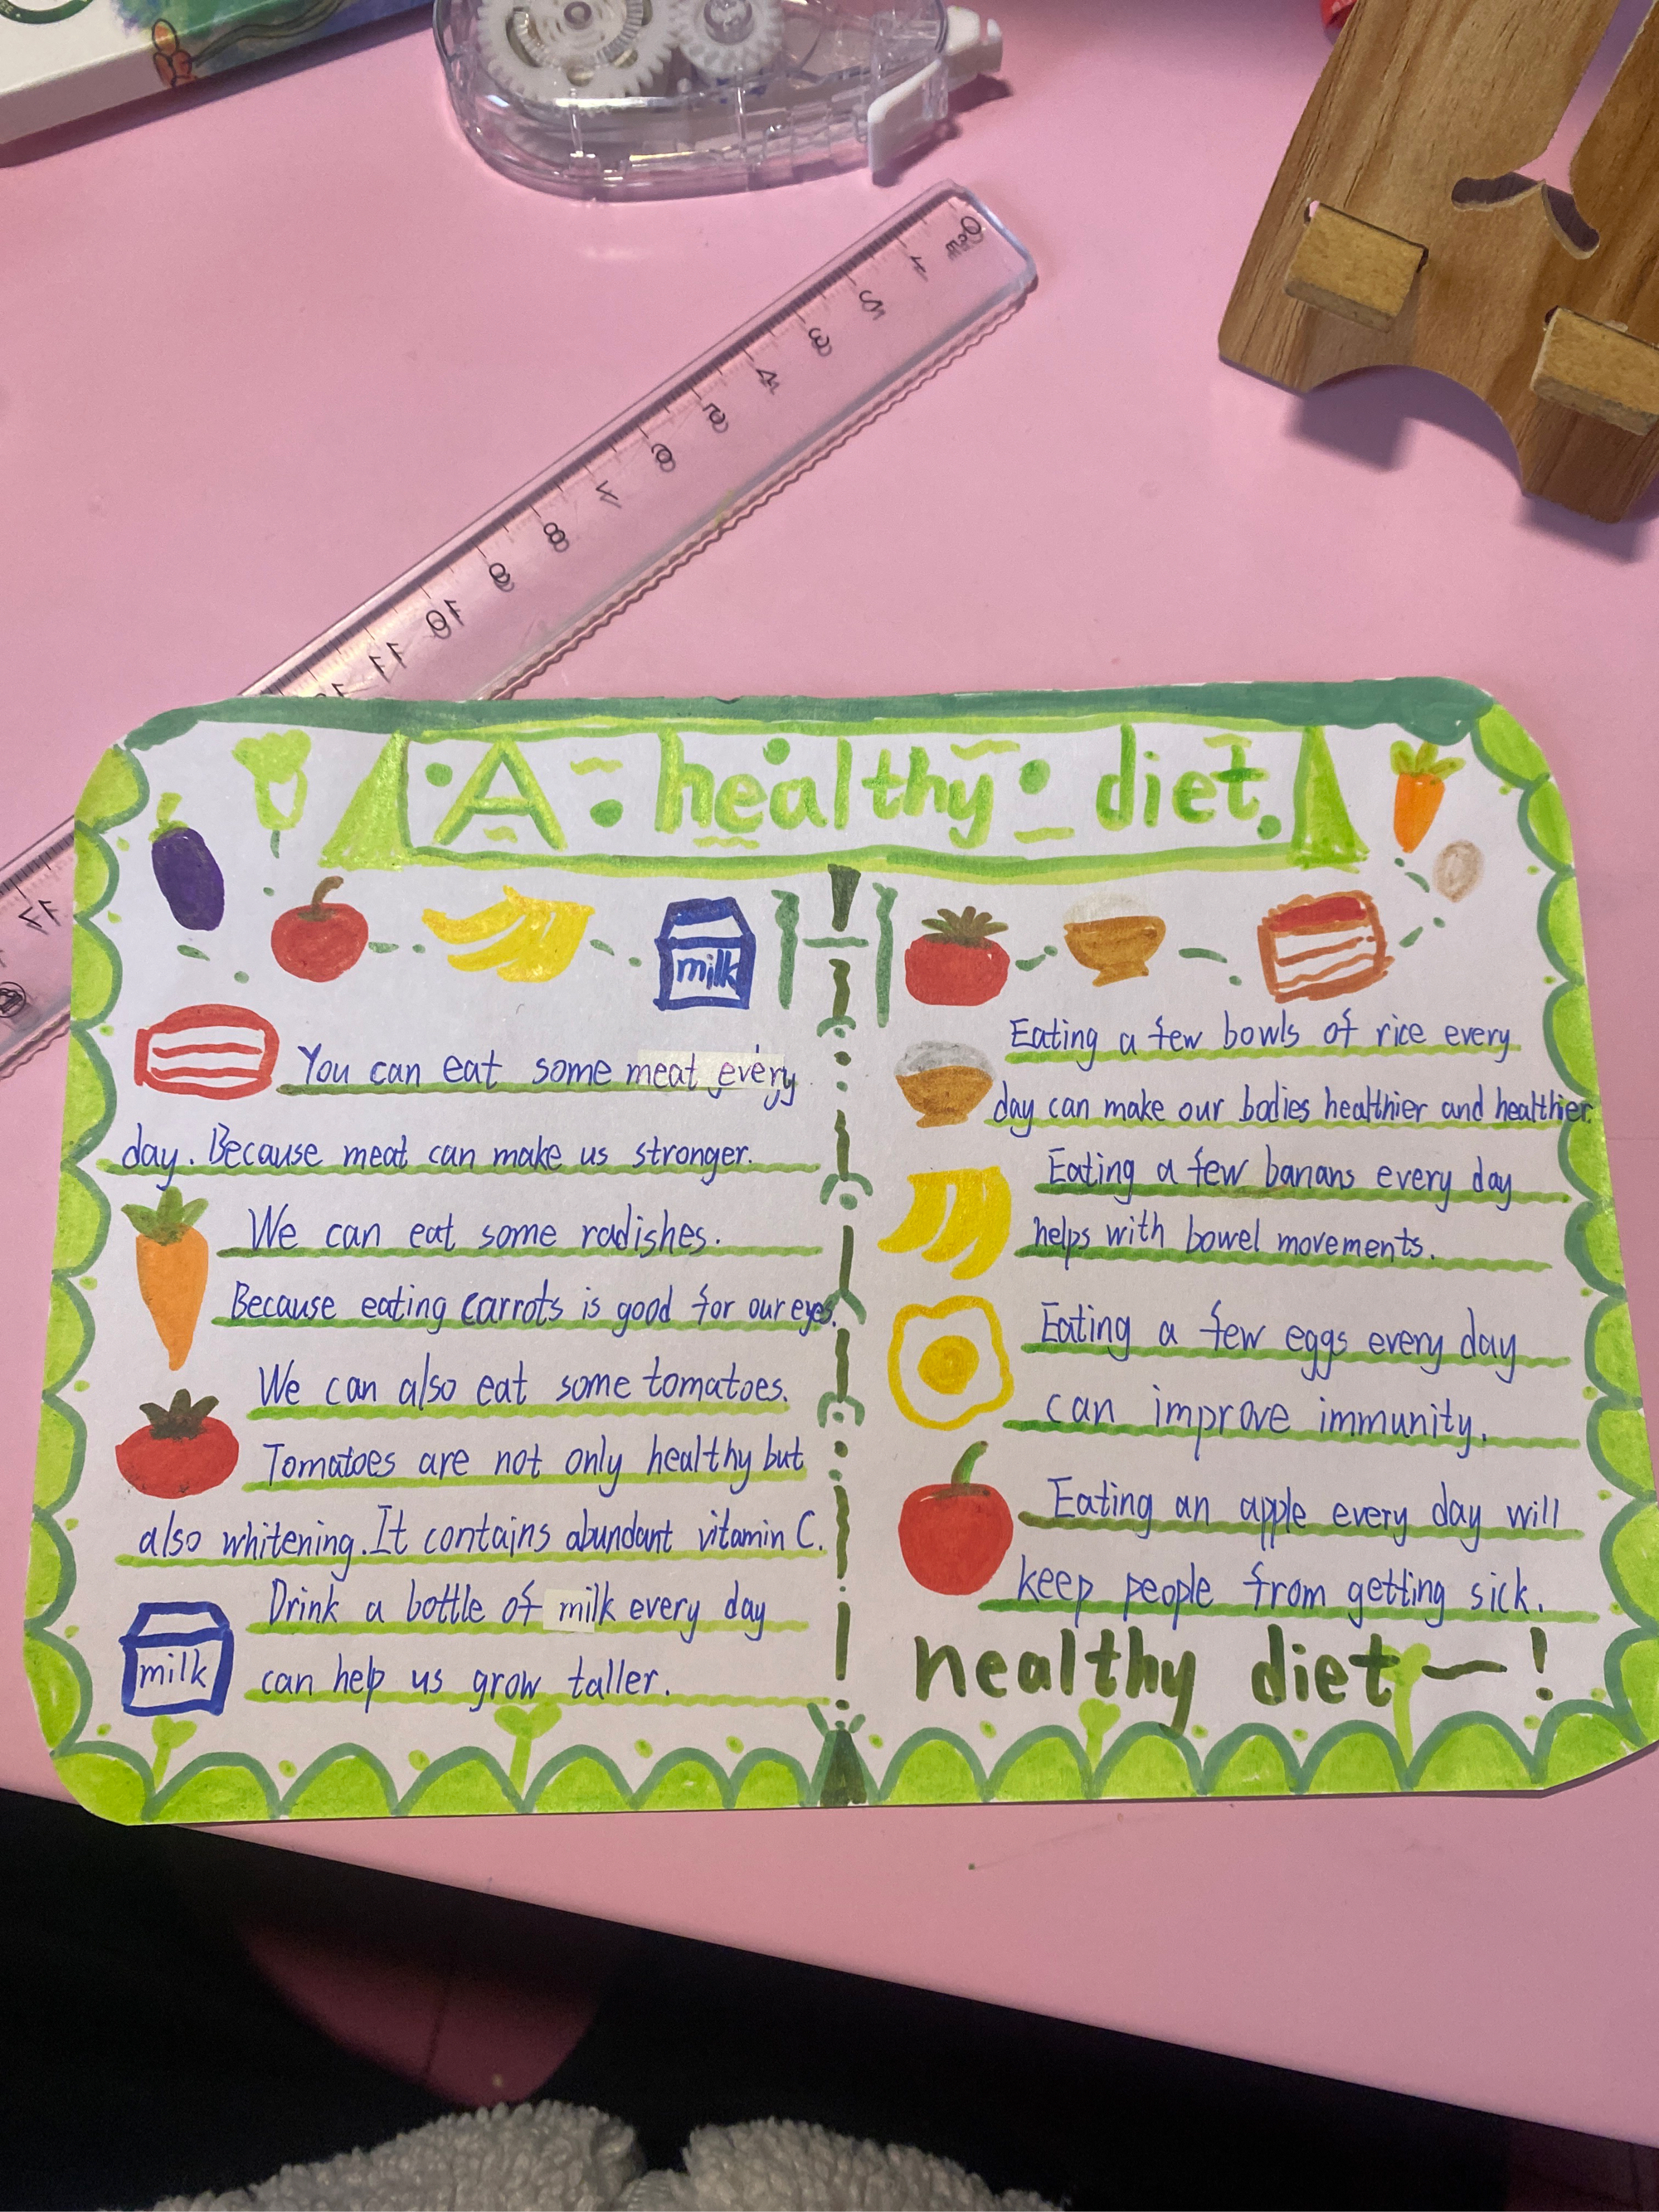 0cm 1 2 3 4 5 6 7 8 9 10 11
A healthy diet.
milk
You can eat some meat every
day. Because meat can make us stronger.
We can eat some radishes.
Because eating carrots is good for our eyes.
We can also eat some tomatoes.
Tomatoes are not only healthy but
also whitening. It contains abundant vitamin C.
Drink a bottle of milk every day
milk
can help us grow taller.
Eating a few bowls of rice every
day can make our bodies healthier and healthier.
Eating a few banans every day
helps with bowel movements.
Eating a few eggs every day
can improve immunity.
Eating an apple every day will
keep people from getting sick.
healthy diet—!